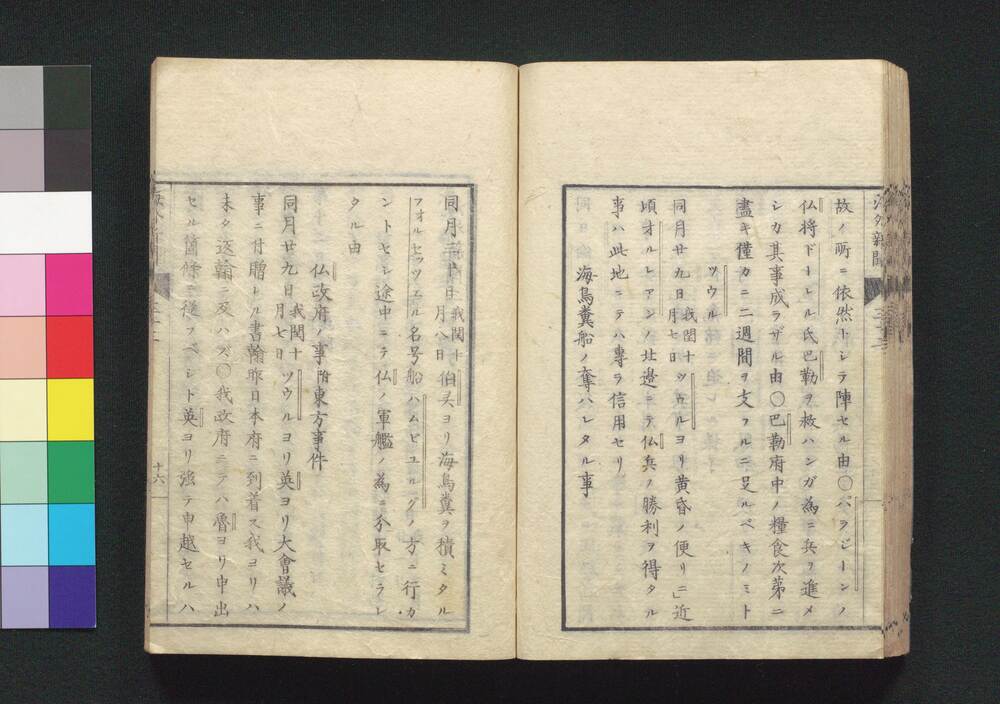 海外新聞
故ノ所ニ依然トシテ陣セル由〇パラジーンノ
仏将ドーレル氏巴勒ヲ救ハンガ為ニ兵ヲ進メ
シカ其事成ラザル由〇巴勒府中ノ糧食次第ニ
盡キ僅カニ二週間ヲ支フルニ足ルベキノミト
ツウル
同月廿九日我閏十月七日ツウルヨリ黄昏ノ便リニ」近
頃オルレアンノ北邉ニテ仏兵ノ勝利ヲ得タル
事ハ此地ニテハ專ラ信用セリ
海鳥糞船ノ奪ハレタル事
同月三十日我閏十月八日伯英ヨリ海鳥糞ヲ積ミタル
フオルセツツエル名号船ハムビユルグノ方ニ行カ
ントセシ途中ニテ仏ノ軍艦ノ為ニ分取セラレ
タル由
仏政府ノ事附東方事件
同月廿九日我閏十月七日ツウルヨリ英ヨリ大會議ノ
事ニ付贈レル書翰昨日本府ニ到着ス我ヨリハ
未タ返翰ニ及ハズ〇我政府ニテハ魯ヨリ申出
セル箇條ニ従フベシト英ヨリ強テ申越セルハ
十六